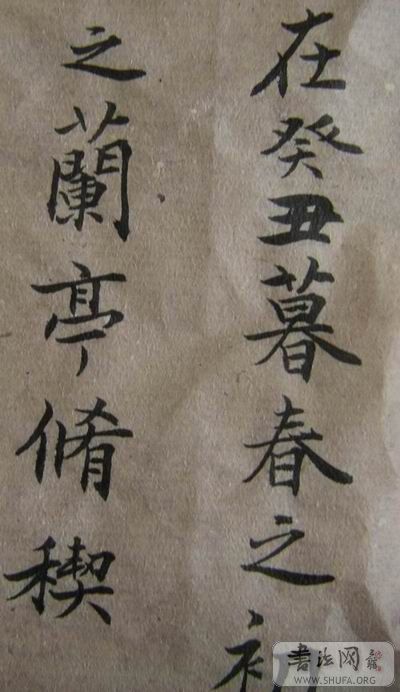 在癸丑暮春之
之蘭亭脩稧
書法网
WWW.SHUFA.ORG